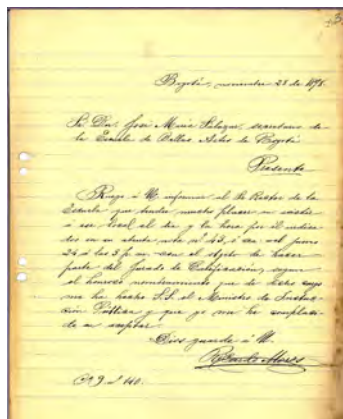 Bogotá, noviembre 23 de 1898.
Sr. Don José María secretario de
la Escuela de Bellas Artes de Bogotá
Presente
Ruego á U. informar al Sr. Rector de la
Escuela que tendré mucho placer en asistir
á ese local el dia y la hora por él indica
dos en su atenta nota nº 43, ó sea el jueves
24 á las 3 p. m. con el objeto de hacer
parte del Jurado de Calificación, según
el honroso nombramiento que de dicho cargo
me ha hecho S.S. el Ministro de Instruc
ción Pública y que yo me he complaci
do en aceptar.
Dios guarde á U.
Ricardo